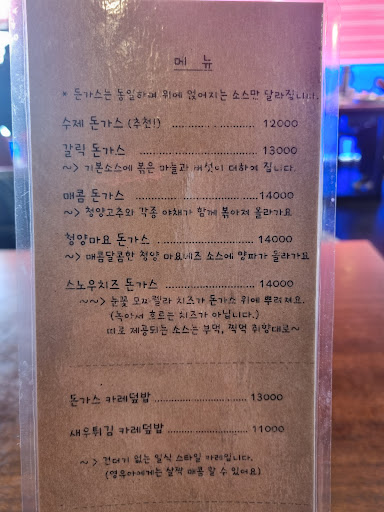 메 뉴
* 돈가스는 동일하며 위에 얹어지는 소스만 달라집니다.
수제 돈가스 (추천!) ........................ 12000
갈릭 돈가스 ........................ 13000
~> 기본소스에 볶은 마늘과 버섯이 더하여 집니다.
매콤 돈가스 ........................ 14000
~> 청양고추와 각종 야채가 함께 볶아져 올라가요
청양마요 돈가스 ........................ 14000
~> 매콤달콤한 청양 마요네즈 소스에 양파가 올라가요
스노우치즈 돈가스 ........................ 14000
~~> 눈꽃 모짜렐라 치즈가 돈가스 위에 뿌려져요.
(녹아서 흐르는 치즈가 아닙니다.)
따로 제공되는 소스는 부먹, 찍먹 취향대로~
돈가스 카레덮밥 ........................ 13000
새우튀김 카레덮밥 ........................ 11000
~> 건더기 없는 일식 스타일 카레입니다.
(영유아에게는 살짝 매콤 할 수 있어요)